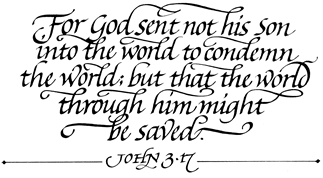 For God sent not his son
into the world to condemn
the world; but that the world
through him might
be saved.
JOHN 3·17